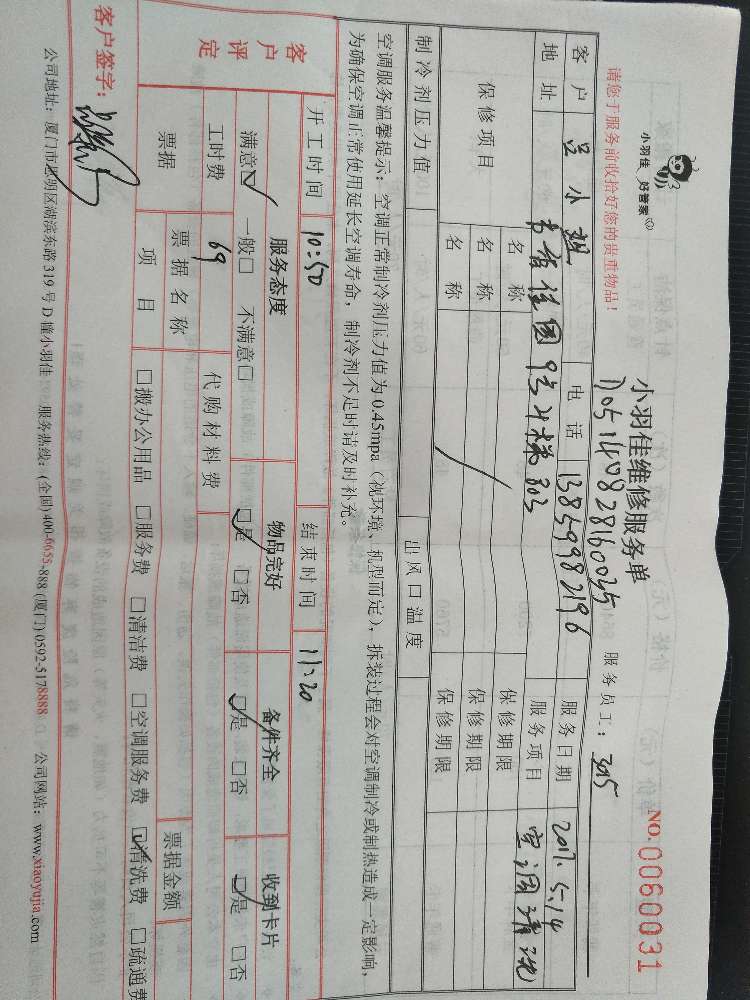 小羽佳 好管家
小羽佳维修服务单
NO.0060031
请您于服务前收拾好您的贵重物品!
服务员工: 3015
客户 吕小姐 电话 13859982196 服务日期 2017.5.14
地址 9号楼303 服务项目 空调清洗
保修项目 名称 保修期限
名称 保修期限
名称 保修期限
制冷剂压力值 出风口温度
空调服务温馨提示:空调正常制冷剂压力值为0.45mpa(视环境、机型而定),拆装过程会对空调制冷或制热造成一定影响,
为确保空调正常使用延长空调寿命,制冷剂不足时请及时补充。
开工时间 10:50 结束时间 11:20
客户评定 服务态度 物品完好 备件齐全 收到卡片
满意☑ 一般□ 不满意□ ☑是 □否 ☑是 □否 ☑是 □否
工时费 69 代购材料费
票据 票据名称 票据金额
项目 □搬办公用品 □服务费 □清洁费 □空调服务费 ☑清洗费 □疏通费
客户签字:
公司地址:厦门市思明区湖滨东路319号D幢小羽佳 服务热线:(全国)400-6655-888 (厦门)0592-5178888 公司网站:www.xiaoyujia.com